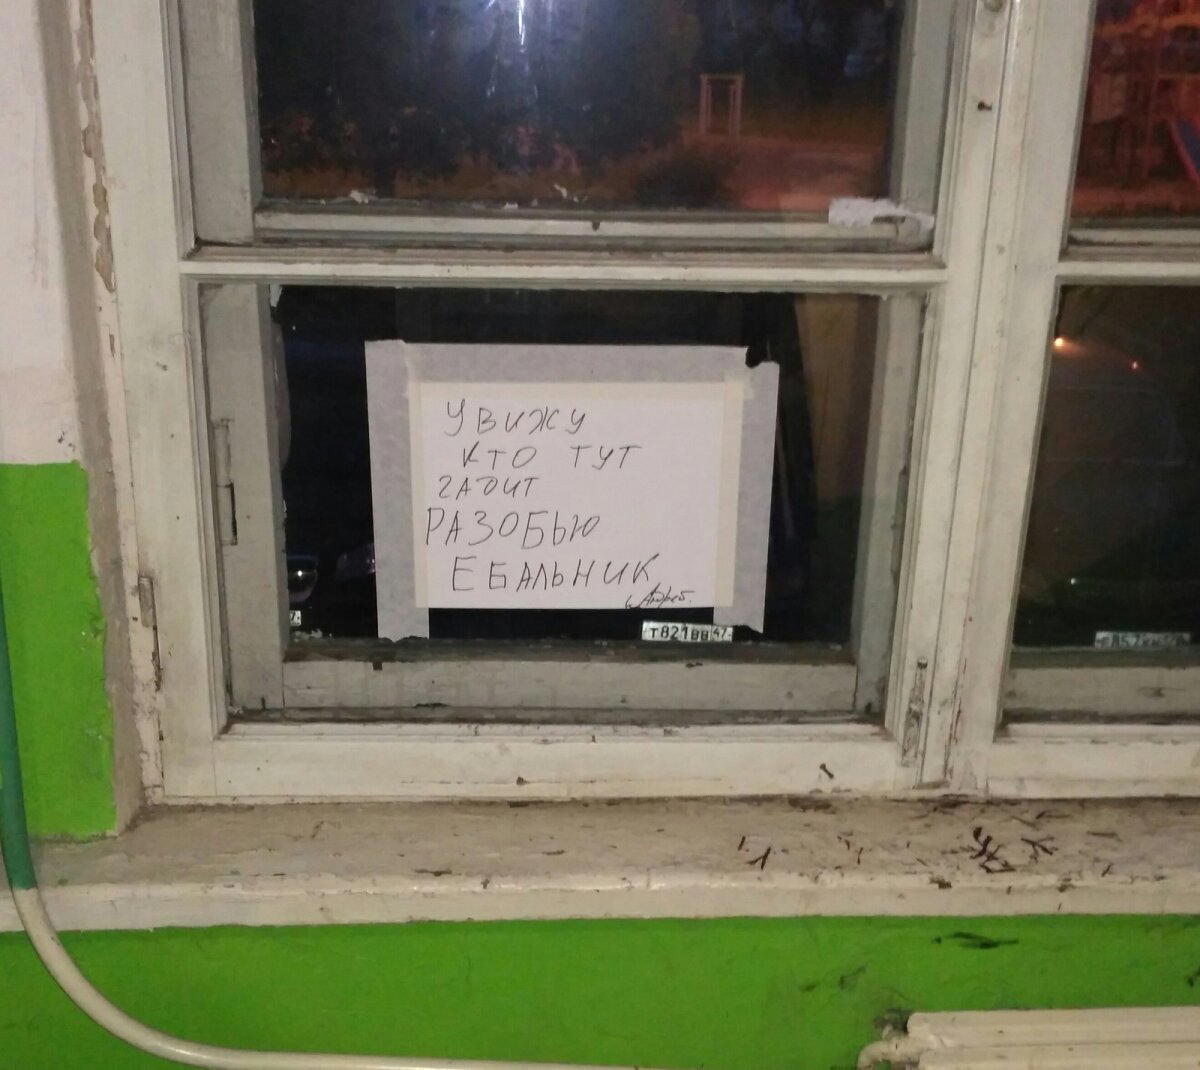 УВИЖУ
КТО ТУТ
ГАДИТ
РАЗОБЬЮ
ЕБАЛЬНИК
Т821ВВ 47